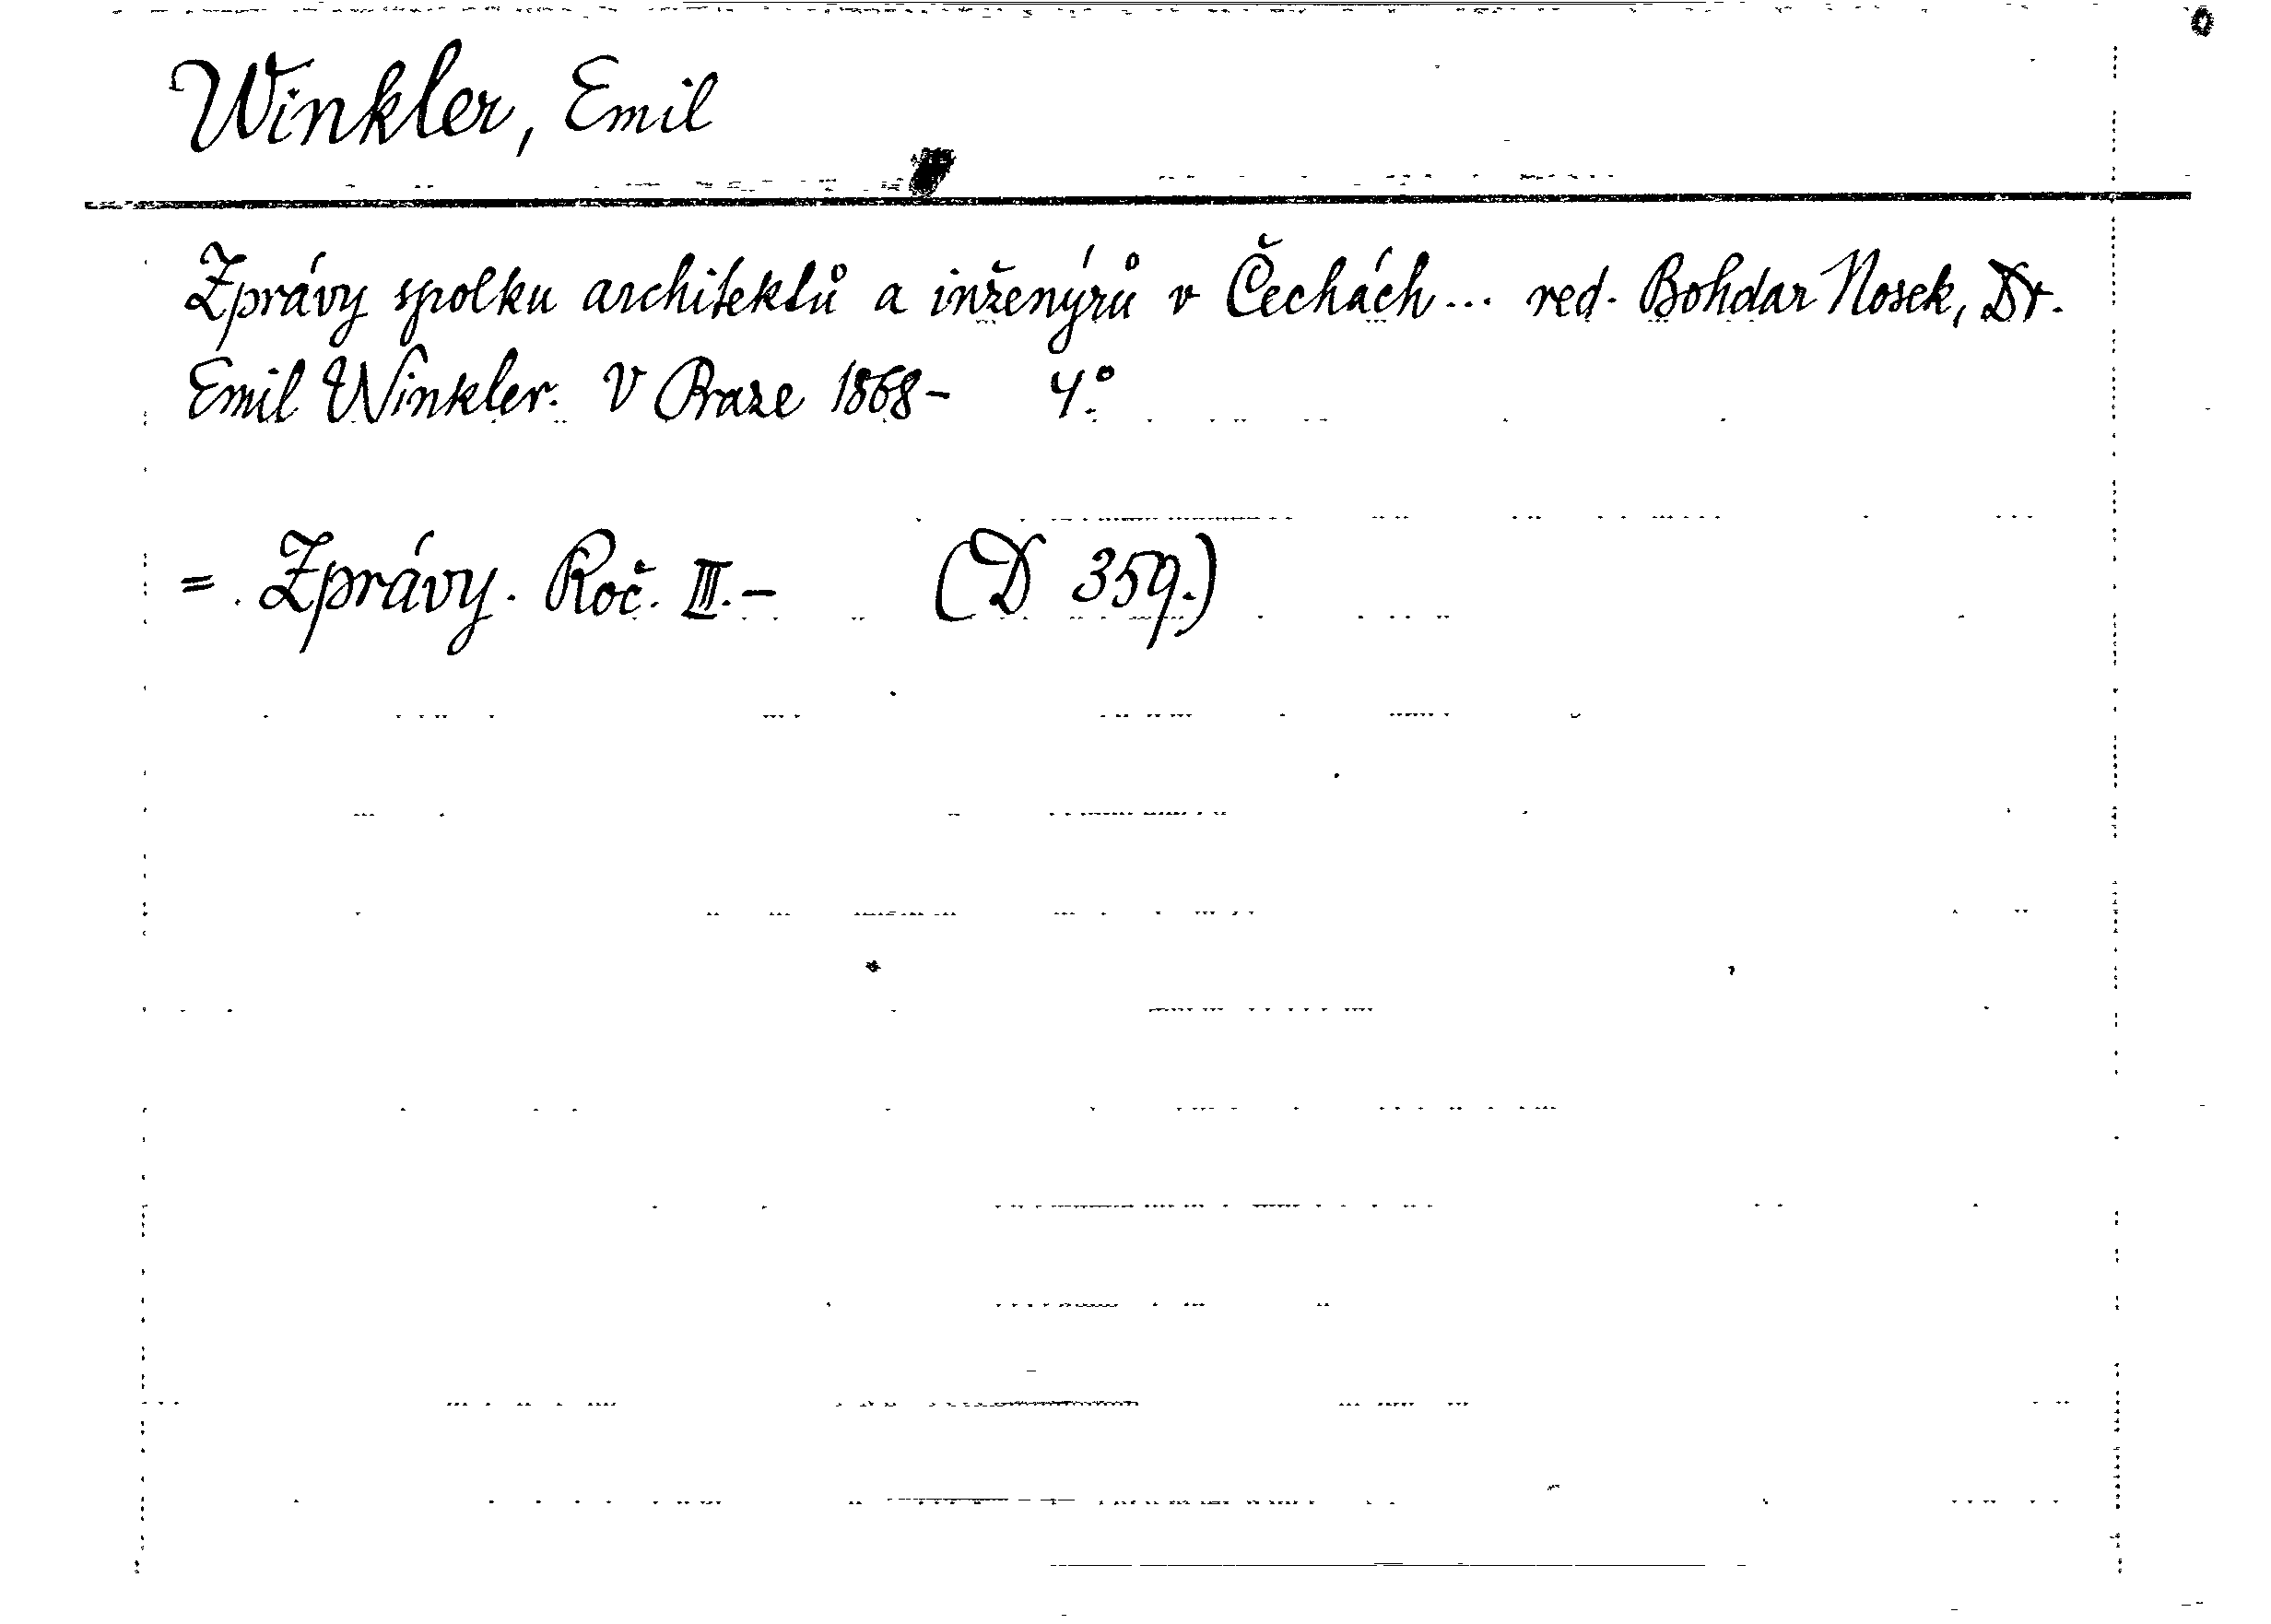 Winkler, Emil
Zprávy spolku architektů a inženýrů v Čechách... red. Bohdan Nosek, Dr.
Emil Winkler. V Praze 1868- 4°.
= Zprávy. Roč. III.- (D 359.)